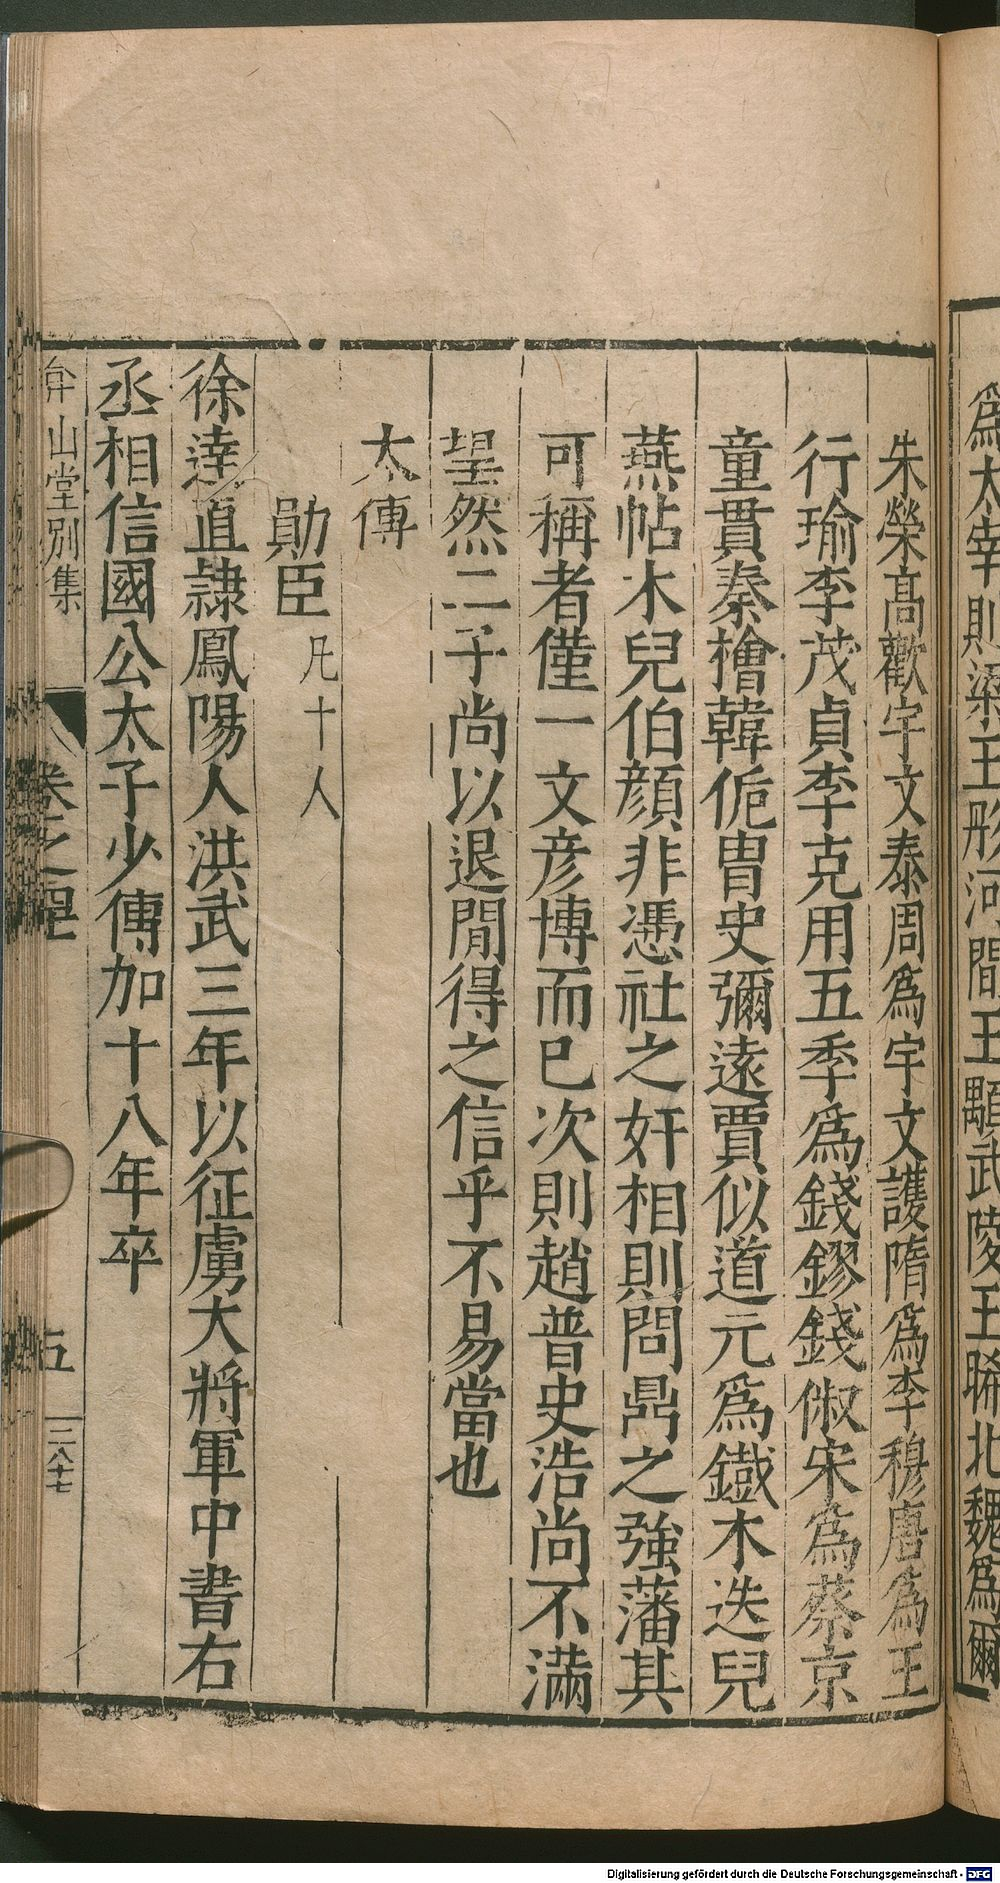 爲太宰則梁王肜河間王顒武陵王晞北魏爲爾
朱榮高歡宇文泰周爲宇文護隋爲李穆唐爲王
行瑜李茂貞李克用五季爲錢鏐錢俶宋爲蔡京
童貫秦檜韓侂冑史彌遠賈似道元爲鐵木迭兒
燕帖木兒伯顏非憑社之奸相則問鼎之強藩其
可稱者僅一文彥博而已次則趙普史浩尚不滿
望然二子尚以退閒得之信乎不易當也
太傅
勛臣凡十人
徐達直隷鳳陽人洪武三年以征虜大將軍中書右
丞相信國公太子少傅加十八年卒
弇山堂別集
卷之
五
二八十七
Digitalisierung gefördert durch die Deutsche Forschungsgemeinschaft - DFG